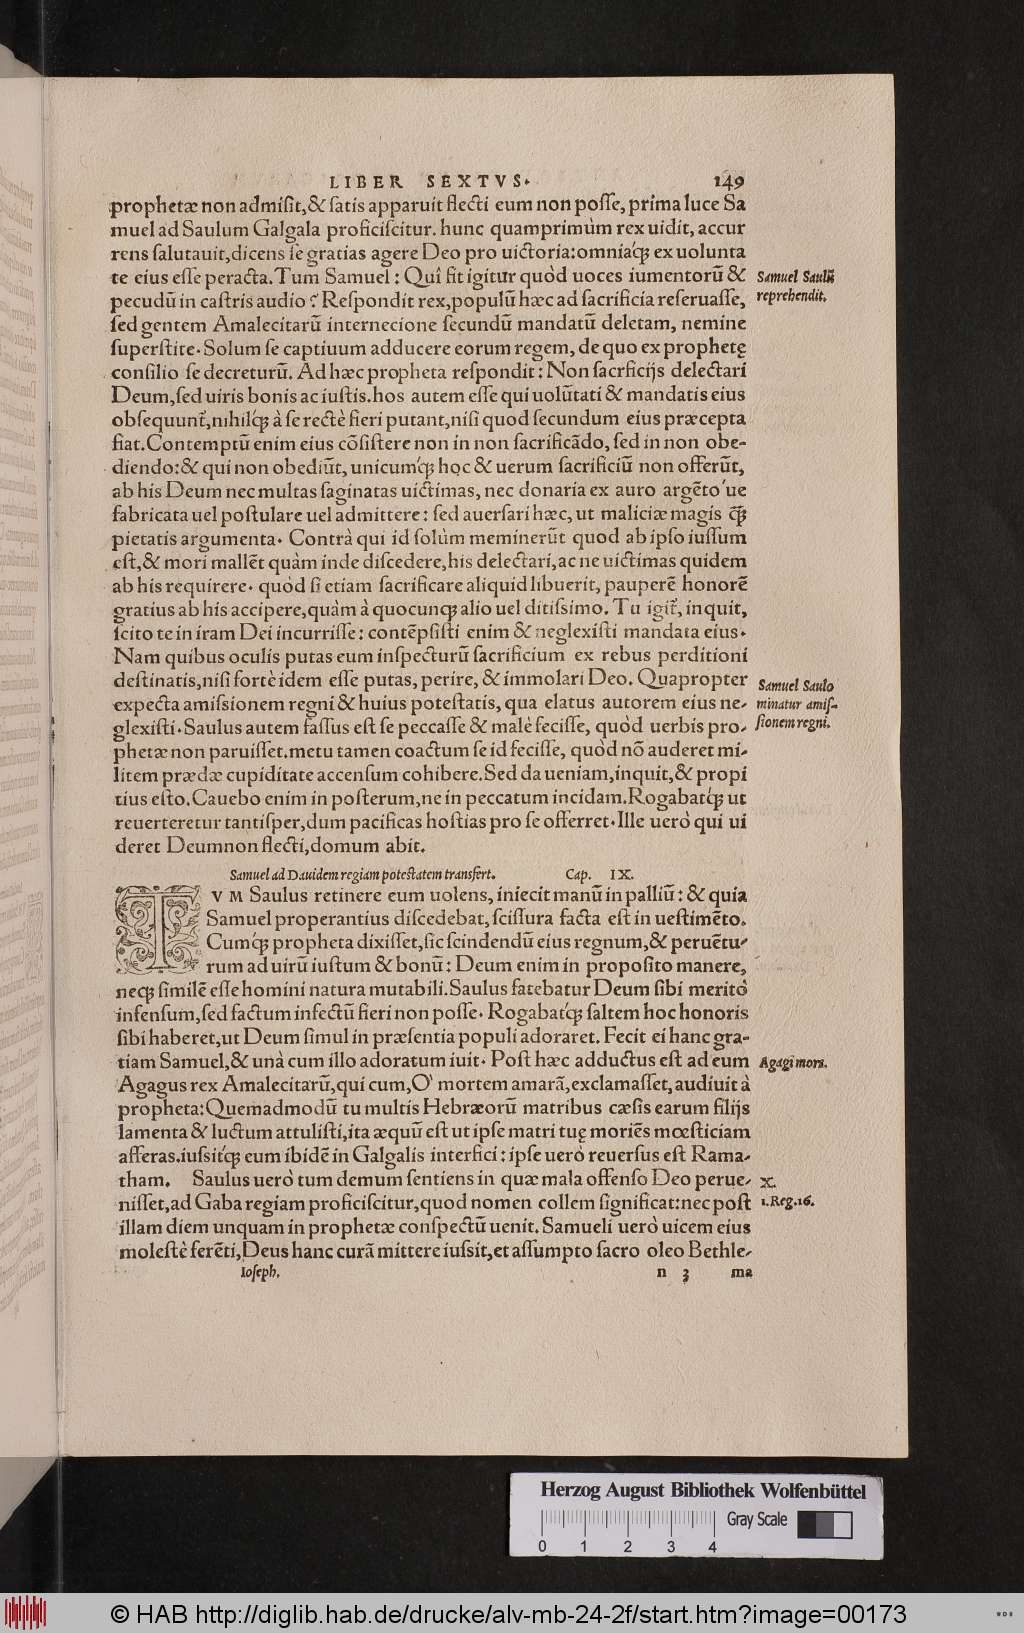 LIBER SEXTVS. 149
prophetæ non admisit,& satis apparuit flecti eum non posse, prima luce Sa
muel ad Saulum Galgala proficiscitur. hunc quamprimùm rex uidit, accur
rens salutauit,dicens se gratias agere Deo pro uictoria:omniaq́ꝫ ex uolunta
te eius esse peracta.Tum Samuel: Quî fit igitur quòd uoces iumentorũ &
Samuel Saulũ
pecudũ in castris audio? Respondit rex,populũ hæc ad sacrificia reseruasse,
reprehendit.
sed gentem Amalecitarũ internecione secundũ mandatũ deletam, nemine
superstite. Solum se captiuum adducere eorum regem, de quo ex prophetę
consilio se decreturũ. Ad hæc propheta respondit: Non sacrficijs delectari
Deum,sed uiris bonis ac iustis.hos autem esse qui uolũtati & mandatis eius
obsequunt᷑,nihilq́ꝫ à se rectè fieri putant,nisi quod secundum eius præcepta
fiat.Contemptũ enim eius cõsistere non in non sacrificãdo, sed in non obe-
diendo:& qui non obediũt, unicumq́ꝫ hoc & uerum sacrificiũ non offerũt,
ab his Deum nec multas saginatas uictimas, nec donaria ex auro argẽto'ue
fabricata uel postulare uel admittere: sed auersari hæc, ut maliciæ magis q̃ꝫ
pietatis argumenta. Contrà qui id solùm meminerũt quod ab ipso iussum
est,& mori mallẽt quàm inde discedere,his delectari,ac ne uictimas quidem
ab his requirere. quòd si etiam sacrificare aliquid libuerit, pauperẽ honorẽ
gratius ab his accipere,quàm à quocunqꝫ alio uel ditissimo. Tu igit᷑, inquit,
scito te in iram Dei incurrisse: contẽpsisti enim & neglexisti mandata eius.
Nam quibus oculis putas eum inspecturũ sacrificium ex rebus perditioni
destinatis,nisi fortè idem esse putas, perire, & immolari Deo. Quapropter
Samuel Saulo
expecta amissionem regni & huius potestatis, qua elatus autorem eius ne-
minatur amis-
glexisti. Saulus autem fassus est se peccasse & malè fecisse, quòd uerbis pro-
sionem regni.
phetæ non paruisset.metu tamen coactum se id fecisse, quòd nõ auderet mi-
litem prædæ cupiditate accensum cohibere.Sed da ueniam,inquit,& propi
tius esto.Cauebo enim in posterum,ne in peccatum incidam.Rogabatq́ꝫ ut
reuerteretur tantisper,dum pacificas hostias pro se offerret. Ille uerò qui ui
deret Deumnon flecti,domum abit.
Samuel ad Dauidem regiam potestatem transfert. Cap. IX.
TVM Saulus retinere eum uolens, iniecit manũ in palliũ: & quia
Samuel properantius discedebat, scissura facta est in uestimẽto.
Cumq́ꝫ propheta dixisset,sic scindendũ eius regnum,& peruẽtu-
rum ad uirũ iustum & bonũ: Deum enim in proposito manere,
neqꝫ similẽ esse homini natura mutabili.Saulus fatebatur Deum sibi meritò
infensum,sed factum infectũ fieri non posse. Rogabatq́ꝫ saltem hoc honoris
sibi haberet,ut Deum simul in præsentia populi adoraret. Fecit ei hanc gra-
tiam Samuel,& unà cum illo adoratum iuit. Post hæc adductus est ad eum
Agagi mors.
Agagus rex Amalecitarũ,qui cum,O' mortem amarã,exclamasset,audiuit à
propheta:Quemadmodũ tu multis Hebræorũ matribus cæsis earum filijs
lamenta & luctum attulisti,ita æquũ est ut ipse matri tuę moriẽs mœsticiam
afferas.iussitq́ꝫ eum ibidẽ in Galgalis interfici: ipse uerò reuersus est Rama-
tham. Saulus uerò tum demum sentiens in quæ mala offenso Deo perue-
X.
nisset,ad Gaba regiam proficiscitur,quod nomen collem significat:nec post
1.Reg.16.
illam diem unquam in prophetæ conspectũ uenit. Samueli uerò uicem eius
molestè ferẽti,Deus hanc curã mittere iussit,et assumpto sacro oleo Bethle-
Ioseph. n 3 ma
Herzog August Bibliothek Wolfenbüttel
Gray Scale
0 1 2 3 4
© HAB http://diglib.hab.de/drucke/alv-mb-24-2f/start.htm?image=00173